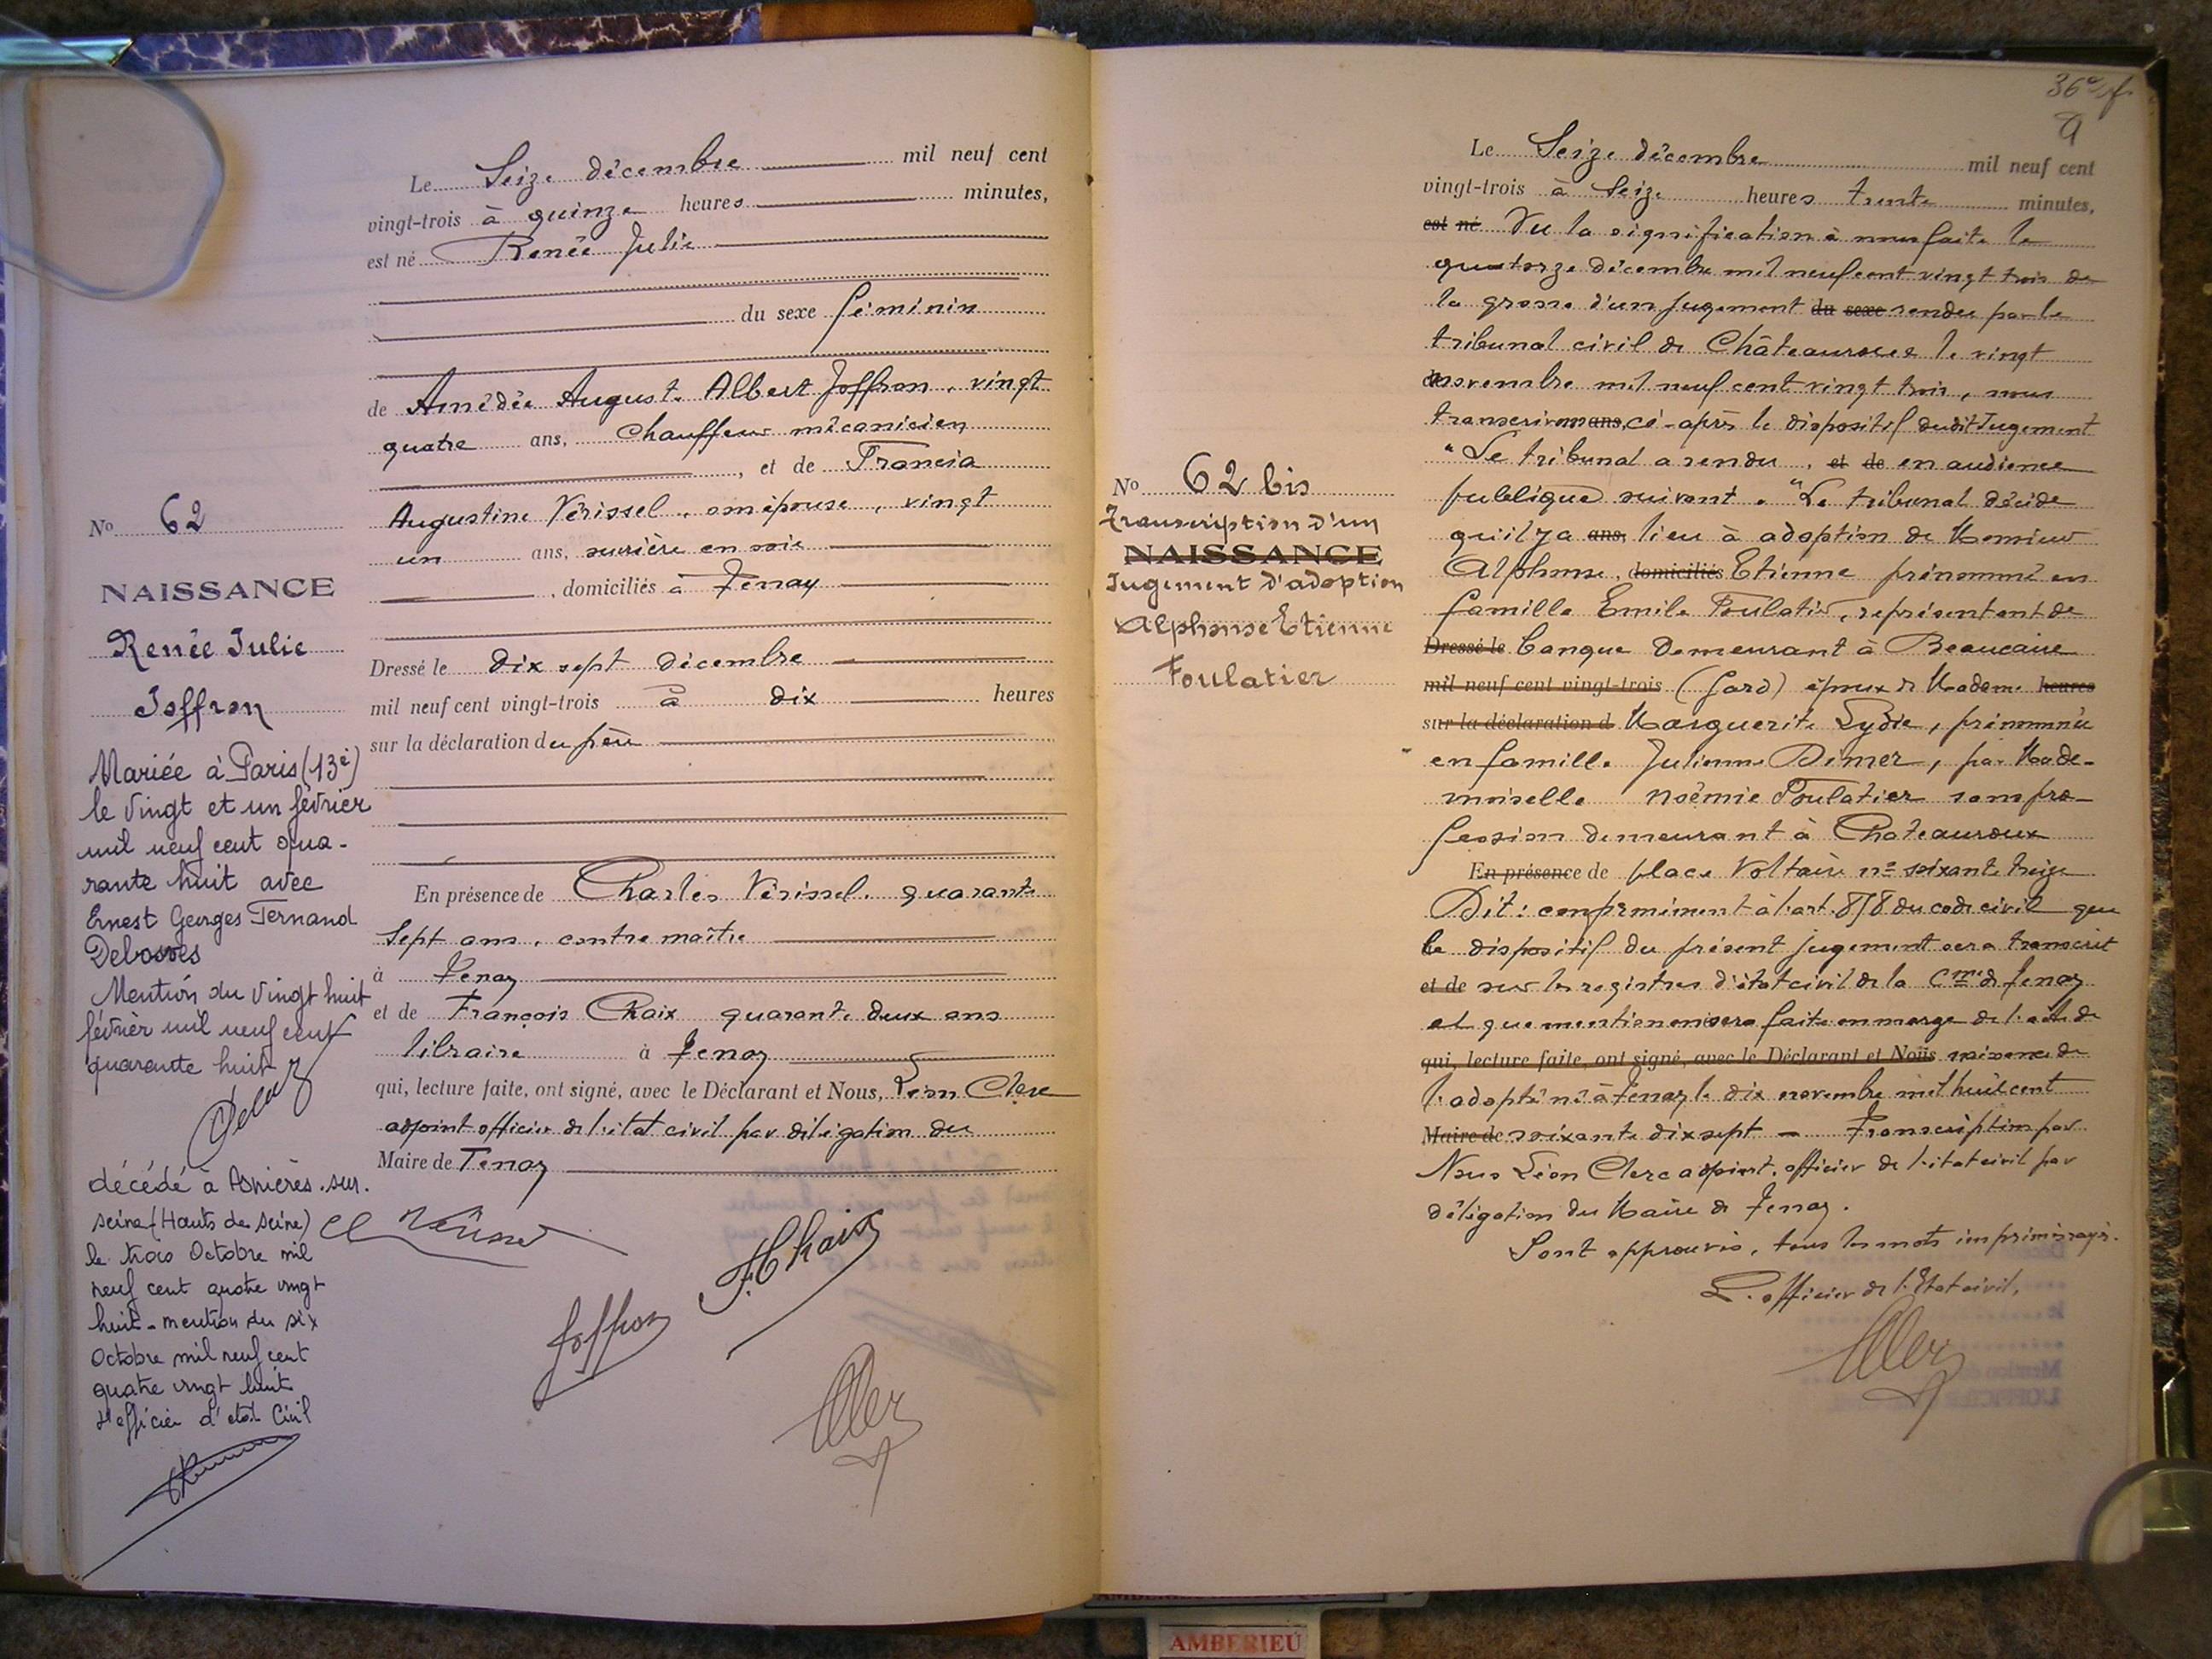 Le Seize décembre mil neuf cent
vingt-trois à quinze heures minutes,
est né Renée Julie
du sexe féminin
de Amédée Auguste Albert Joffron, vingt
quatre ans, Chauffeur mécanicien
, et de Francia
Augustine Vérissel, son épouse, vingt
un ans, ouvrière en soie
, domiciliés à Tenay
Dressé le dix sept décembre
mil neuf cent vingt-trois à dix heures
sur la déclaration du père
En présence de Charles Vérissel, quarante
Sept ans, contre maître
à Tenay
et de François Chaix quarante deux ans
libraire à Tenay
qui, lecture faite, ont signé, avec le Déclarant et Nous, Léon Clerc
adjoint officier de l'état civil par délégation du
Maire de Tenay
Joffron
F. Chaix
No 62
NAISSANCE
Renée Julie
Joffron
Mariée à Paris (13è)
le vingt et un février
mil neuf cent qua-
rante huit avec
Ernest Georges Fernand
Mention du vingt huit
février mil neuf cent
quarante huit
décédé à Asnières-sur-
seine (Hauts de seine)
le trois Octobre mil
neuf cent quatre vingt
huit - mention du six
Octobre mil neuf cent
quatre vingt huit
L'officier d'etat Civil
36e f.
Le Seize décembre mil neuf cent
vingt-trois à Seize heures trente minutes,
est né Vu la signification à nous faite le
quatorze décembre mil neuf cent vingt trois de
la grosse d'un jugement du sexe rendu par le
tribunal civil de Châteauroux le vingt
novembre mil neuf cent vingt trois, nous
transcrivons ans, ci-après le dispositif dudit Jugement
"Le tribunal a rendu, et de en audience
publique suivant. "Le tribunal décide
qu'il y a ans, lieu à adoption de Monsieur
Alphonse, domiciliés Etienne prénommé en
famille Emile Foulatier, représentant de
Dressé le banque demeurant à Beaucaire
mil neuf cent vingt-trois (Gard) époux de Madame heures
sur la déclaration d Marguerite Lydie, prénommée
en famille Julienne Dimer, par Made-
moiselle Noémie Foulatier sans pro-
fession demeurant à Chateauroux
En présence de place Voltaire no soixante treize
Dit: conformément à l'art. 858 du code civil que
le dispositif du présent jugement sera transcrit
et de sur les registres d'état civil de la Cne de Tenay
et que mention en sera faite en marge de l'acte de
qui, lecture faite, ont signé, avec le Déclarant et Nous naissance de
l'adopté né à Tenay le dix novembre mil huit cent
Maire de soixante dix sept - Transcription par
Nous Léon Clerc adjoint, officier de l'état civil par
délégation du Maire de Tenay.
Sont approuvés, tous les mots imprimés rayés.
L'officier de l'Etat civil,
No 62 bis
Transcription d'un
NAISSANCE
Jugement d'adoption
Alphonse Etienne
Foulatier
AMBERIEU